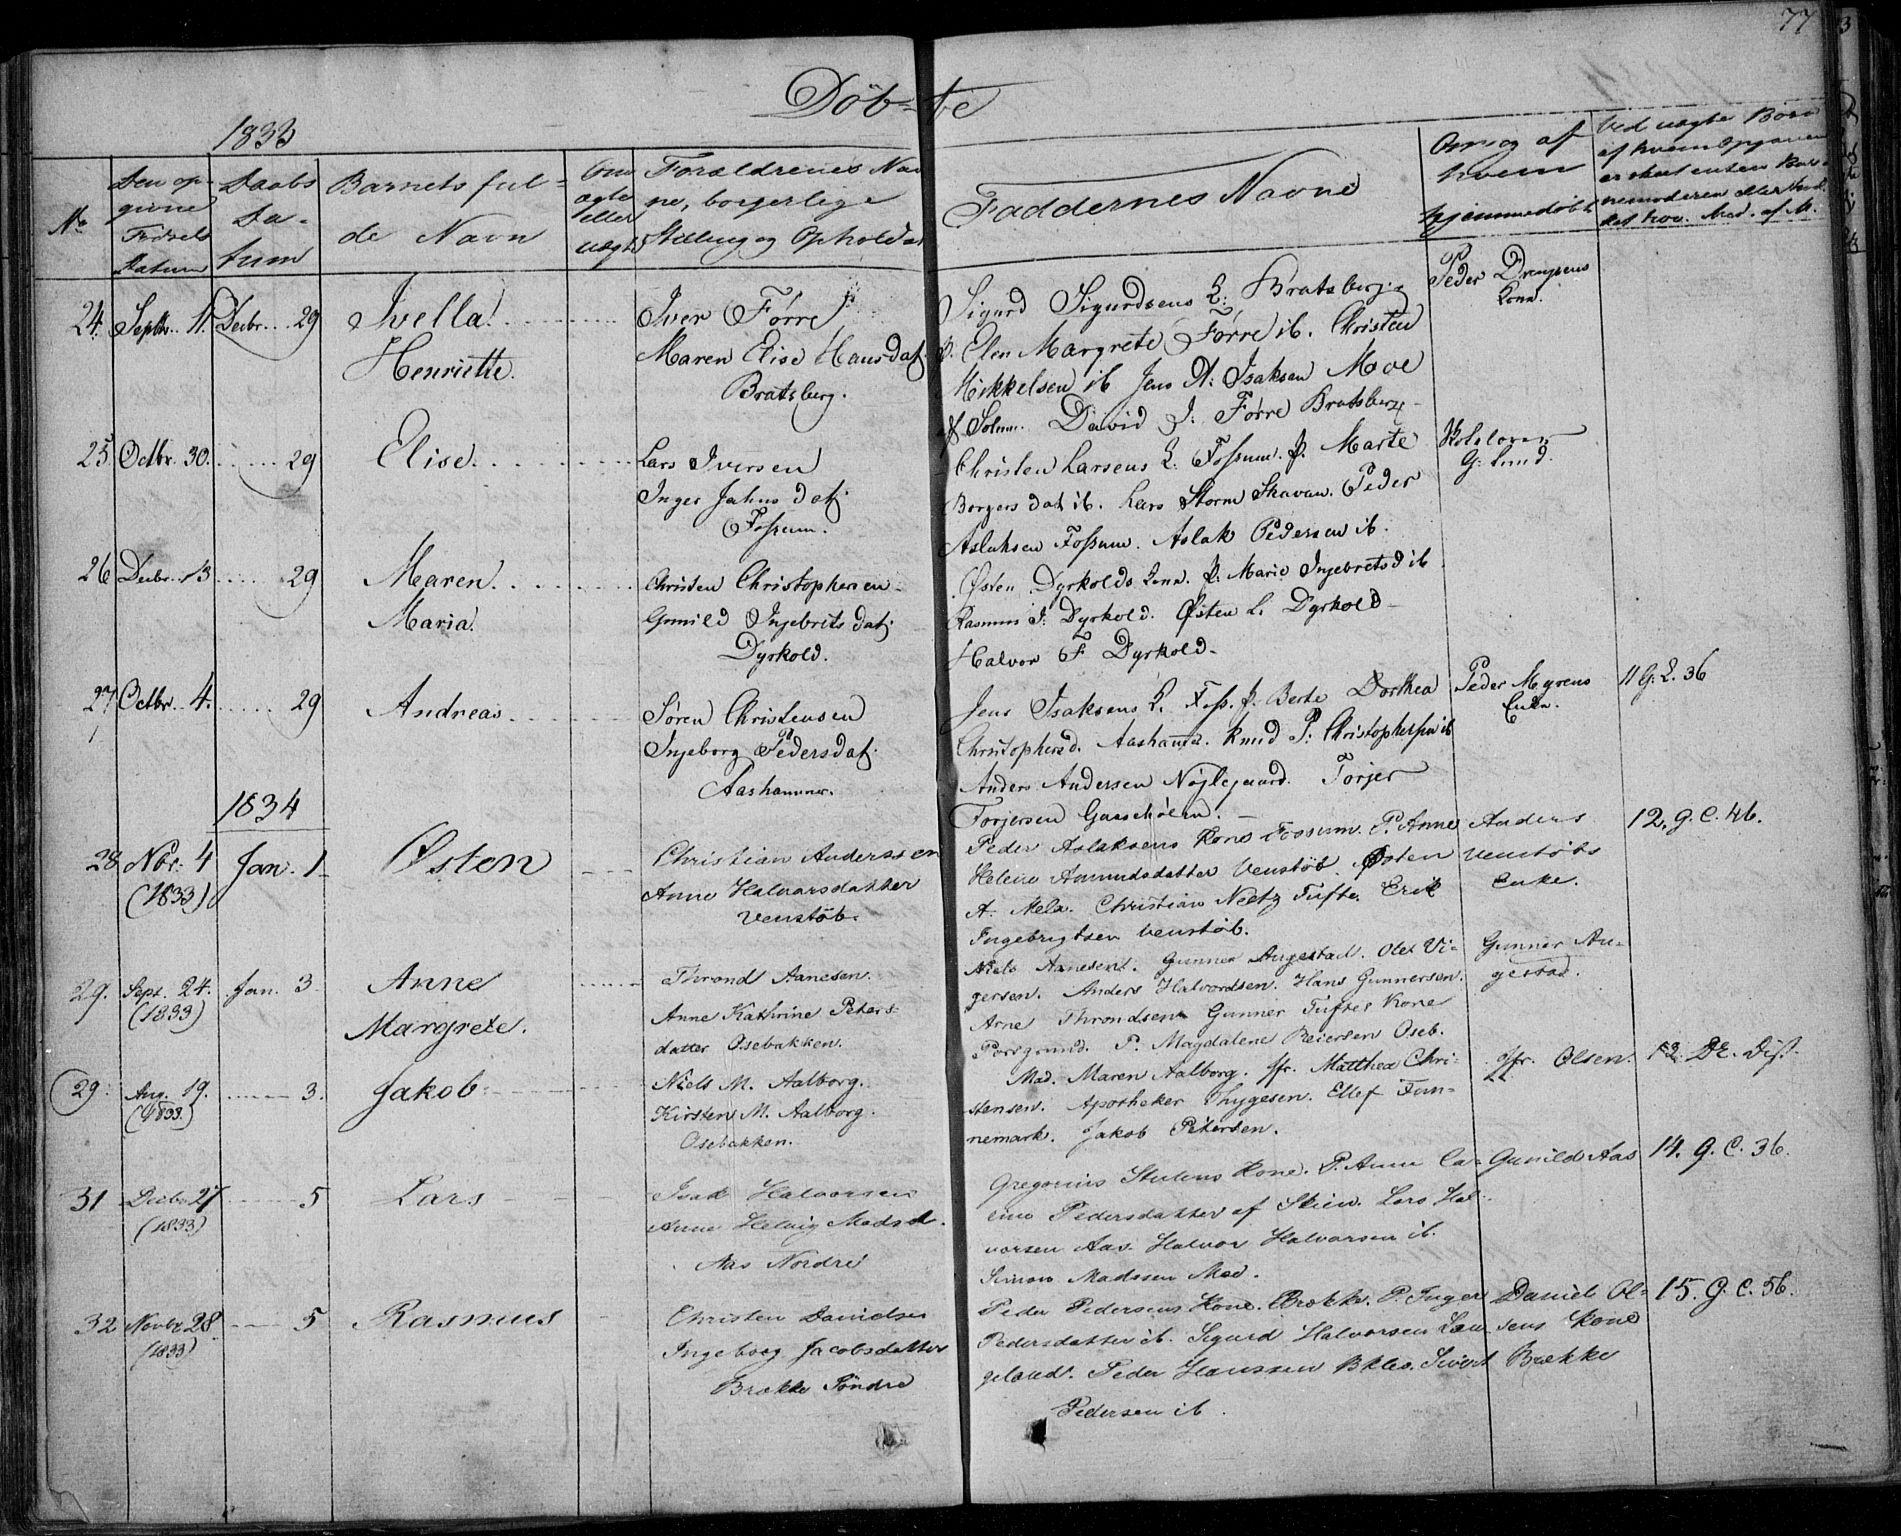 77
Döb-te
1833
No
Den op-
givne
Fødsels
Datum
Daabs
Da-
tum
Barnets ful-
de Navn
Om
ægte
eller
uægte
Forældrenes Nav
ne, borgerlige
Stilling og Ophold
Faddernes Navne
Om og af
hvem
hjemmedøbt
Ved uægte Børn
24. Septbr. 11. Decbr. 29 Ivella
Henriette.
Iver Førre
Maren Elise Hansdat.
Bratsberg.
Sigurd Sigurdsens K: Bratsberg.
P. Elen Margrete Førre ib. Christen
Mikkelsen ib Jens A: Isaksen Moe
af Solum. David J: Førre Bratsberg
Peder
Kone.
25 Octbr. 30. 29 Elise.
Lars Iversen
Inger Jahnsdat.
Fossum.
Christen Larsens K. Fossum. P. Marte
Borgersdat ib. Lars Storm Skavan. Peder
Aslaksen Fossum. Aslak Pedersen ib.
G: Lund.
26 Decbr. 13 29 Maren
Maria.
Christen Christophersen
Gunild Ingebrits dat.
Dyrkold.
Østen Dyrkolds Kone. P. Marie Ingebretsd ib
Rasmus J: Dyrkold. Østen L. Dyrkold
Halvor F Dyrkold
27 Octbr. 4. 29 Andreas
Søren Christensen
Ingeborg Pedersdat.
Aashammer.
Jens Isaksens K. Foss. P. Berte Dorthea
Christophersd. Aashamer. Knud P: Christophersen ib
Anders Andersen Nøjlegaard. Torjer
Torjersen Gaasehólm.
Peder Myrens
Enke.
11 G. C. 36
1834
28 Nbr. 4 Jan. 1 Østen
(1833)
Christian Anderssen
Anne Halvorsdatter
Venstöb.
Peder Aslaksens Kone Fossum. P. Anne
Helene Amundsdatter Venstöb. Østen
A. Mela. Christian Neetz Tufte. Erik
Ingebrigtsen Venstöb.
Anders
Venstöbs
Enke.
12. G. C. 46.
29. Sept. 24. Jan. 3. Anne
(1833) Margrete.
Thrond Aanesen.
Anne Kathrine Peters-
datter Osebakken.
Niels Aanesen. Gunner Augestad. Olet Vi-
gersen. Anders Halvordsen. Hans Gunnersen.
Arne Throndsen Gunner Tuftes Kone
Porsgrund. P. Magdalene Reiersen Oseb.
Gunner Au-
gestad.
29. Aug. 19. 3. Jakob
(1833)
Niels M. Aalborg.
Kirsten M. Aalborg.
Osebakken.
Mad. Maren Aalborg. Jfr. Matthea Chri-
stensen. Apotheker Thygesen. Ellef Fun-
nemark. Jakob Petersen.
Jfr. Olsen.
31 Decbr 27 5 Lars
(1833)
Isak Halvorsen
Anne Helvig Madsd.
Aas Nordre
Gregorius Stulens Kone. P. Anne Ca-
Pedersdatter af Skien. Lars Hal-
vorsen Aas. Halvor Halvorsen ib.
Simon Madssen Mæ.
Gunild Aas
14. G. C. 36.
32 Novbr 28 5 Rasmus
(1833)
Christen Danielsen
Ingeborg Jacobsdatter
Brække Söndre
Peder Pedersens Kone. Brække. P. Inger
Pedersdatter ib. Sigurd Halvorsen Lan-
geland. Peder Hanssen Bkke. Sivert
Pedersen ib.
Daniel Ol-
sens Kone
Brække
15. G. C. 56.